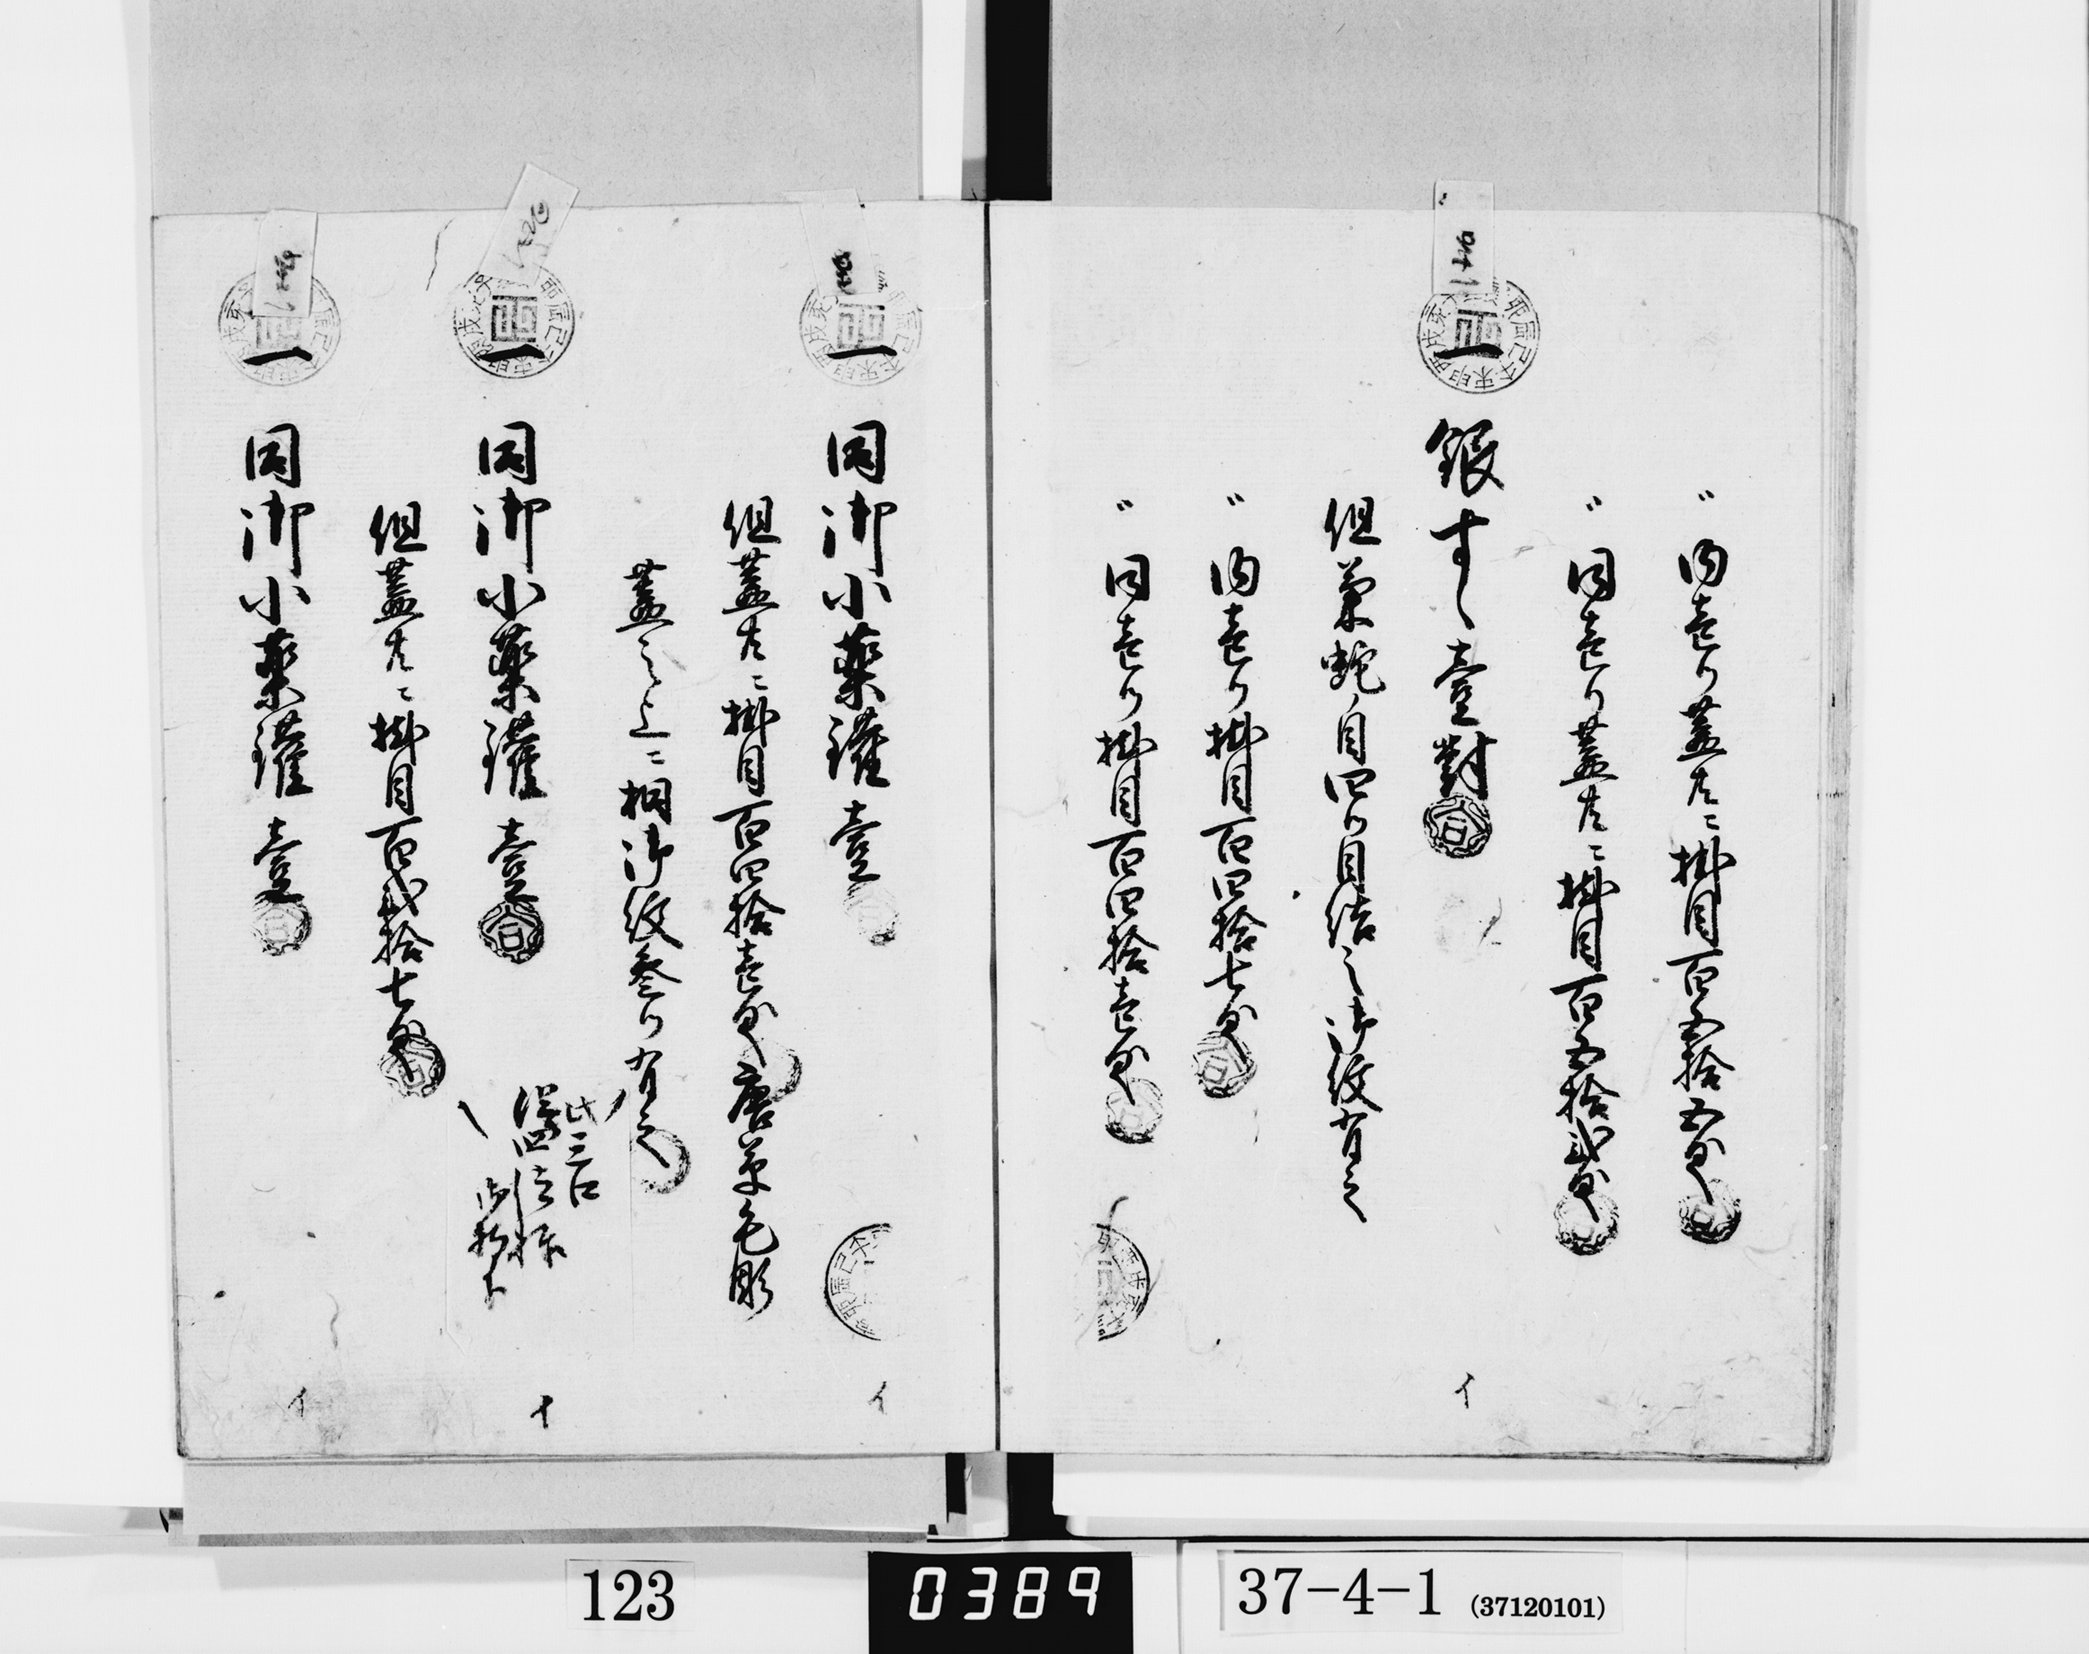 〃内壱ツ蓋共ニ掛目百五拾五匁
〃同壱ツ蓋共ニ掛目百五拾弐匁
一 銀すゝ 壹對
但菊蛇ノ目四ツ目結之御紋有之
〃内壱ツ掛目百四拾七匁
〃同壱ツ掛目百四拾壱匁
イ
一 同御小薬鑵 壹
但蓋共ニ掛目百四拾壱匁唐草毛彫
蓋之上ニ桐御紋参ツ有之
一 同御小薬鑵 壹
此三口
但蓋共ニ掛目百弐拾七匁
一 同御小薬鑵 壹
イ
イ
123
0389
37-4-1 (37120101)